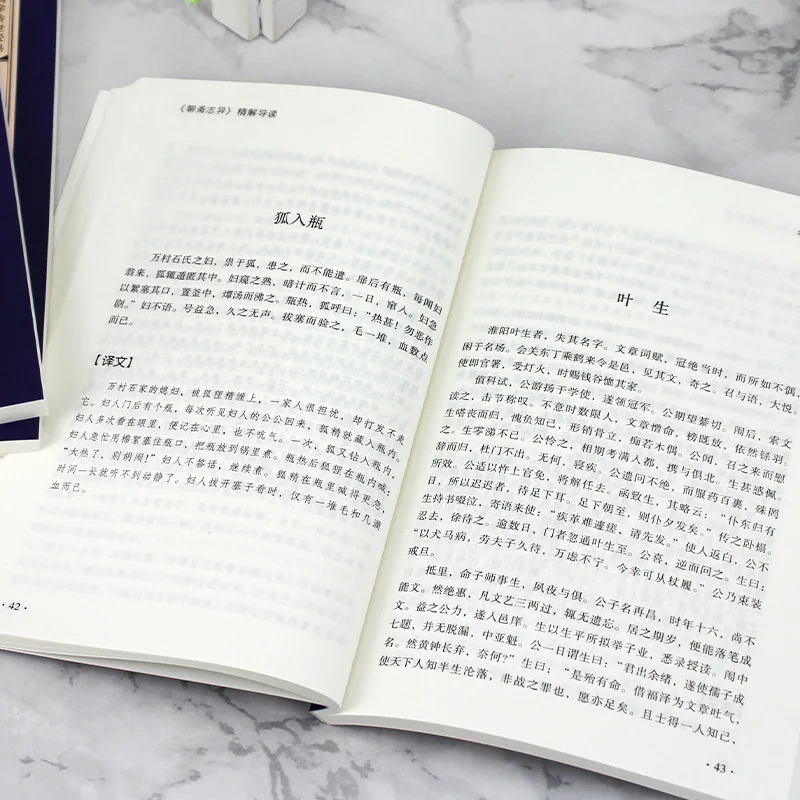 《聊斋志异》精解导读
狐入瓶
万村石氏之妇，祟于狐，患之，而不能遣。扉后有瓶，每闻妇
翁来，狐辄遁匿其中。妇窥之熟，暗计而不言，一日，窜人。妇急
以絮塞其口，置釜中，燂汤而沸之。瓶热，狐呼曰：“热甚！勿恶作
剧。”妇不语。号益急，久之无声。拔塞而验之，毛一堆，血数点
而已。
【译文】
万村石家的媳妇，被狐狸精缠上，一家人很担忧，却打发不走
它。妇人门后有个瓶，每次听见妇人的公公回来，狐精就藏入瓶内。
妇人多次看在眼里，便记在心里，也不吭气。一次，狐又钻入瓶内，
妇人急忙用棉絮塞住瓶口，把瓶放到锅里煮。瓶热后狐狸在瓶内喊：
“太热了，别胡闹！”妇人不答话，继续煮。狐精在瓶里喊得更急，
时间一长就听不到动静了。妇人拔开塞子看时，仅有一堆毛和几滴
血而已。
·42·
叶 生
淮阳叶生者，失其名字。文章词赋，冠绝当时，而所如不偶，
困于名场。会关东丁乘鹤来令是邑，见其文，奇之。召与语，大悦。
使即官署，受灯火，时赐钱谷恤其家。
值科试，公游扬于学使，遂领冠军。公期望綦切。闱后，索文
读之，击节称叹。不意时数限人，文章憎命，榜既放，依然铩羽。
生嗒丧而归，愧负知己，形销骨立，痴若木偶。公闻，召之来而慰
之。生零涕不已。公怜之，相期考满入都，携与俱北。生甚感佩。
辞而归，杜门不出。无何，寝疾。公遗问不绝，而服药百裹，殊罔
所效。公适以忤上官免，将解任去。函致生，其略云：“仆东归有
日，所以迟迟者，待足下耳。足下朝至，则仆夕发矣。”传之卧榻。
生持书啜泣，寄语来使：“疾革难遽瘥，请先发。”使人返白，公不
忍去，徐待之。逾数日，门者忽通叶生至。公喜，逆而问之。生曰：
“以犬马病，劳夫子久待，万虑不宁。今幸可从杖履。”公乃束装
戒旦。
抵里，命子师事生，夙夜与俱。公子名再昌，时年十六，尚不
能文。然绝惠，凡文艺三两过，辄无遗忘。居之期岁，便能落笔成
文。益之公力，遂人邑庠。生以生平所拟举子业，悉录授读。闱中
七题，并无脱漏，中亚魁。公一日谓生曰：“君出余绪，遂使孺子成
名。然黄钟长弃，奈何？”生曰：“是殆有命。借福泽为文章吐气，
使天下人知半生沦落，非战之罪也，愿亦足矣。且士得一人知己，
·43·